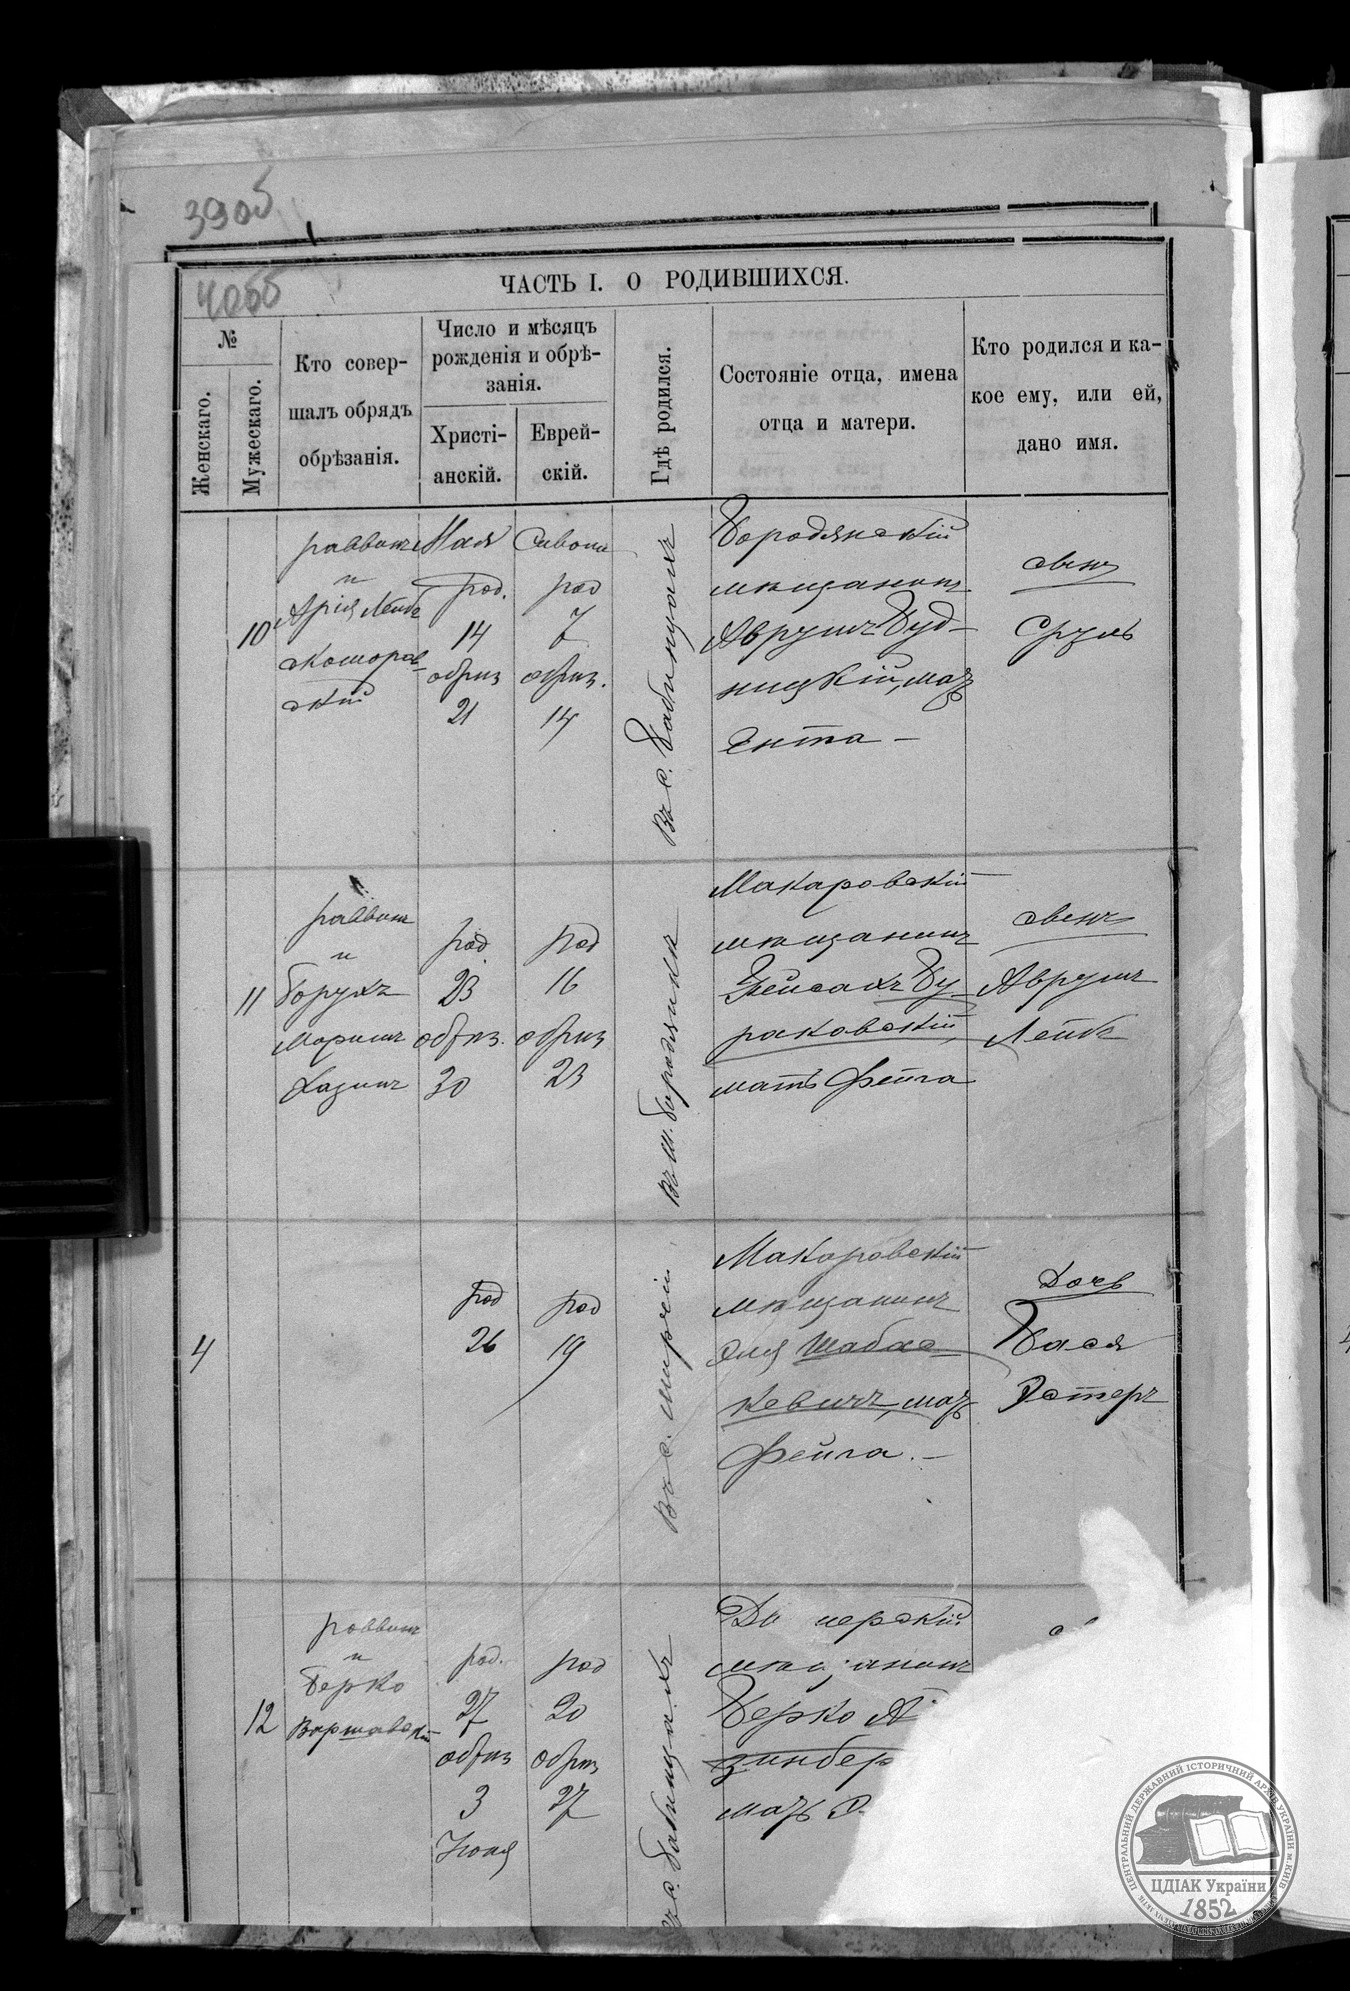 39об
40об
ЧАСТЬ I. О РОДИВШИХСЯ.
№
Женскаго.
Мужескаго.
Кто совер-
шалъ обрядъ
обрѣзанія.
Число и мѣсяцъ
рожденія и обрѣ-
занія.
Христі-
анскій.
Еврей-
скій.
Гдѣ родился.
Состояніе отца, имена
отца и матери.
Кто родился и ка-
кое ему, или ей,
дано имя.
10
раввинъ
и
Арія Лейбъ
Комаров-
скій
Мая
род.
14
обрѣз
21
Сивона
род
7
обрѣз.
14
Въ с. Бабинцахъ
Бородянскій
мѣщанинъ
Аврумъ Буд-
ницкій, мать
Ента —
сынъ
Сруль
11
раввинъ
и
Борухъ
Хазинъ
род.
23
обрѣз.
30
род
16
обрѣз
23
Въ м. Бородянкѣ
Макаровскій
мѣщанинъ
Пейсахъ Бу-
раковскій,
мать Фейга
сынъ
Аврумъ
Лейбъ
4
род
26
род
19
Въ с. Мирчи
Макаровскій
мѣщанинъ
Эля Шабас-
кевичъ, мать
Фейга. —
Дочь
Бася
Эстеръ
12
раввинъ
и
Берко
Варшавскій
род.
27
обрѣз
3
Іюня
род
20
обрѣз
27
с. Бабинцахъ
мѣщанинъ
Берко А
зинбер
мать Э
ЦЕНТРАЛЬНИЙ ДЕРЖАВНИЙ ІСТОРИЧНИЙ АРХІВ УКРАЇНИ м. КИЇВ
ЦДІАК України
1852